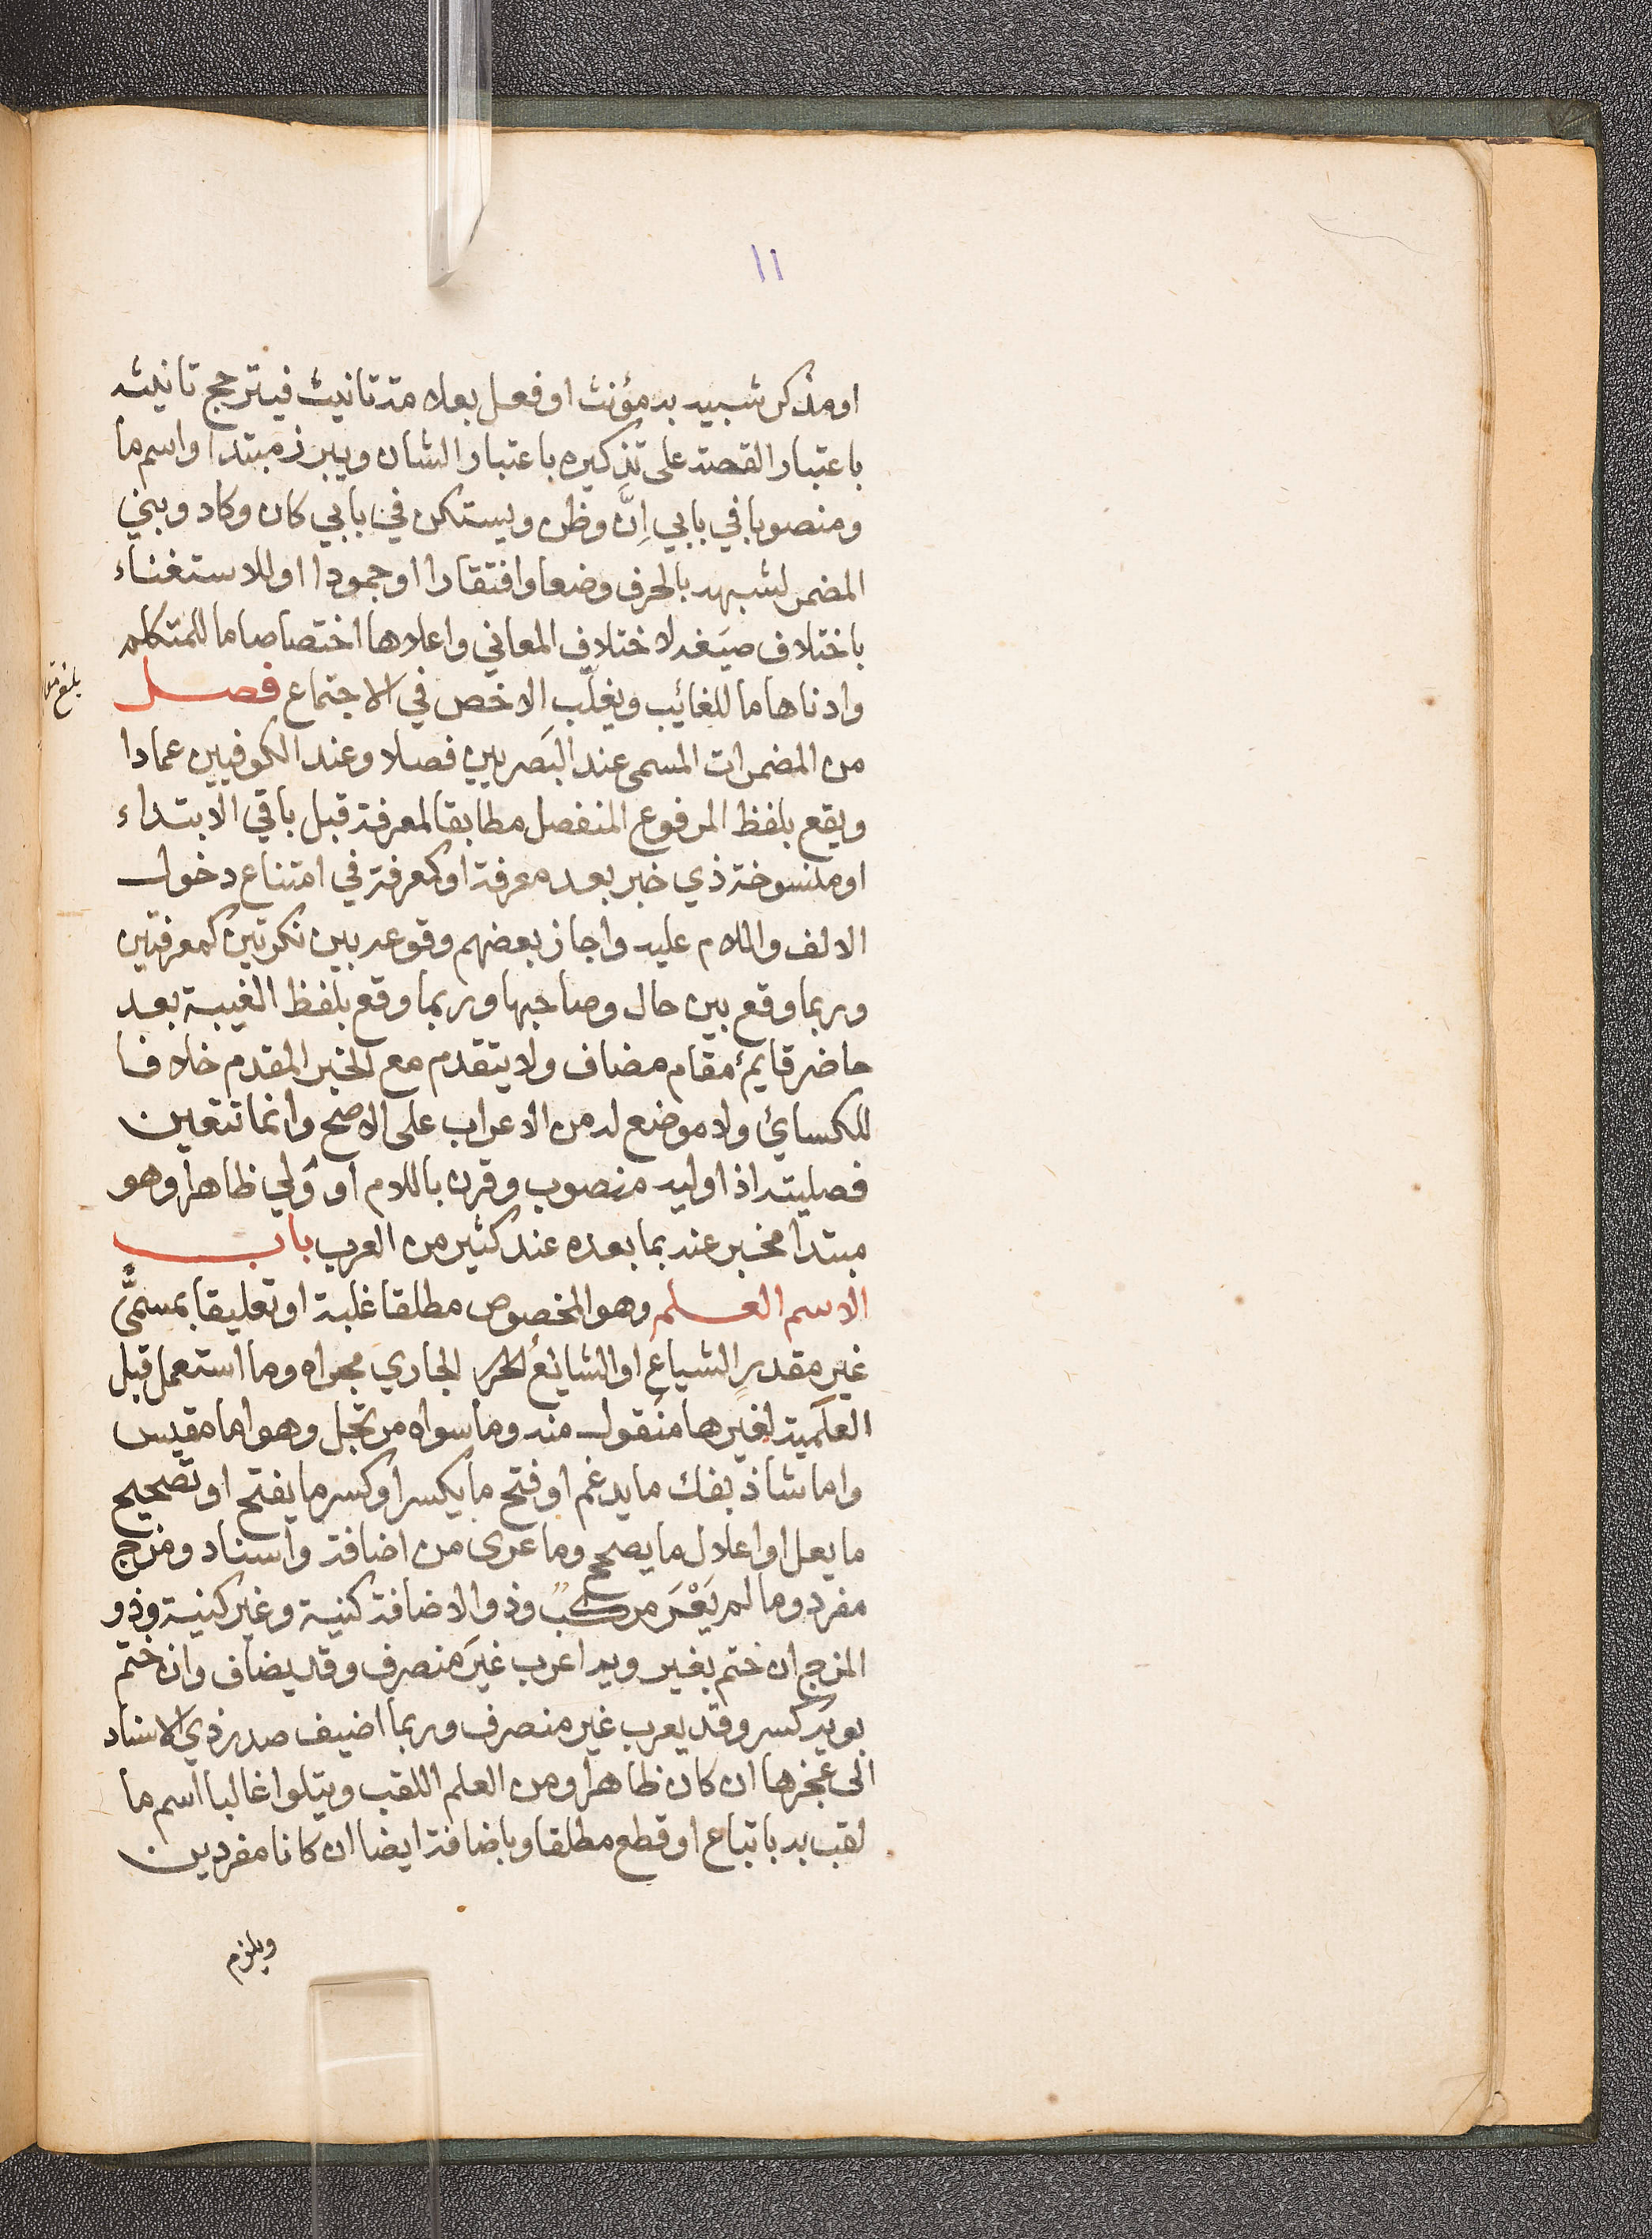 ١١
او مذكر شبيه به مؤنث او فعل بعلامة تانيث فيترجح تانيثه
باعتبار القصة على تذكيره باعتبار الشان ويبرز مبتدا واسم ما
ومنصوبا في بابي اِنَّ وظن ويستكن في بابي كان وكاد وبني
المضمر لشبهه بالحرف وضعا وافتقارا او جمودا او للاستغناء
باختلاف صيَغه لاختلاف المعاني واعلاها اختصاصا ما للمتكلم
وادناها ما للغائب ويغلّب الاخص في الاجتماع فصل
من المضمرات المسمى عند البَصريين فصلا وعند الكوفيين عمادا
ويقع بلفظ المرفوع المنفصل مطابقا لمعرفة قبل باقي الابتداء
او منسوخة ذي خبر بعد معرفة او كمعرفة في امتناع دخول
الالف واللام عليه واجاز بعضهم وقوعه بين نكرتين كمعرفتين
وربما وقع بين حال وصاحبها وربما وقع بلفظ الغيبة بعد
حاضر قايم مقام مضاف ولا يتقدم مع الخبر المقدم خلافا
للكسائ ولا موضع له من الاعراب على الاصح وانما تتعين
فصليته اذا وليه منصوب وقرن باللام او وَلي ظاهرا وهو
مبتدا مخبر عنه بما بعده عند كثير من العرب باب
الاسم العلم وهو المخصوص مطلقا غلبة او تعليقا بمسمًّى
غير مقدرِ الشياع او الشائعُ الجاري مجراه وما استعمل قبل
العلَمية لغيرها منقول منه وما سواه مرتجل وهو اما مقيس
واما شاذ بفك ما يدغم او فتح ما يكسر او كسر ما يفتح او تصحيح
ما يعل او اعلال ما يصحح وما عرى من اضافة واسناد ومزج
مفرد وما لم يَعْرَ مركب وذو الاضافة كنية وغير كنية وذو
المزج ان ختم بغير ويه اعرب غيرَ منصرف وقد يضاف وان ختم
بويه كسر وقد يعرب غير منصرف وربما اضيف صدر ذي الاسناد
الى عجزها ان كان ظاهرا ومن العلم اللقب ويتلوا غالبا اسم ما
لقب به باتباع او قطع مطلقا وباضافة ايضا ان كانا مفردين
ويلزم